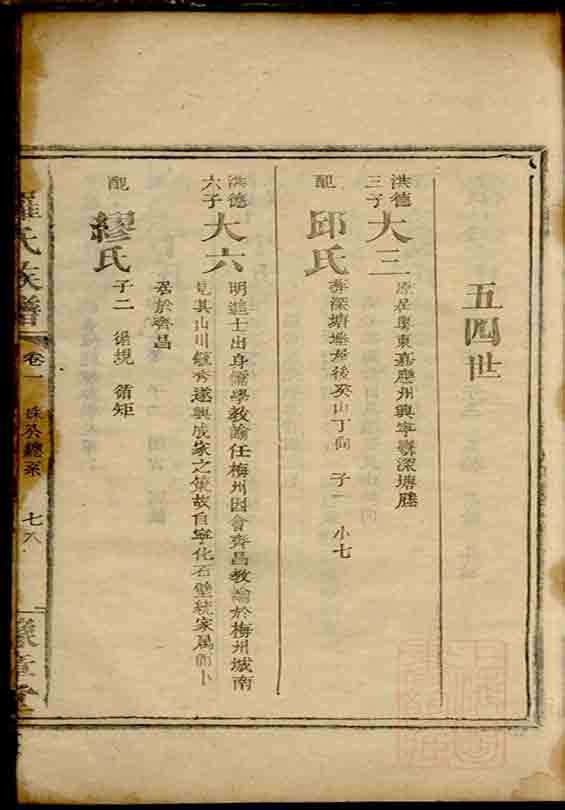 五四世
洪德三子
大三
原居粵東嘉應州興寧縣深塘
配
邱氏
葬深塘 後癸山丁向 子一 小七
洪德六子
大六
明進士出身儒學教諭任梅州因會齊昌教諭於梅州城南
見其山川鍾秀遂興成家之策故自寧化石壁統家属而卜
居於齊昌
配
繆氏
子二 循規 循矩
羅氏族譜
卷一
總系
七八
豫章堂